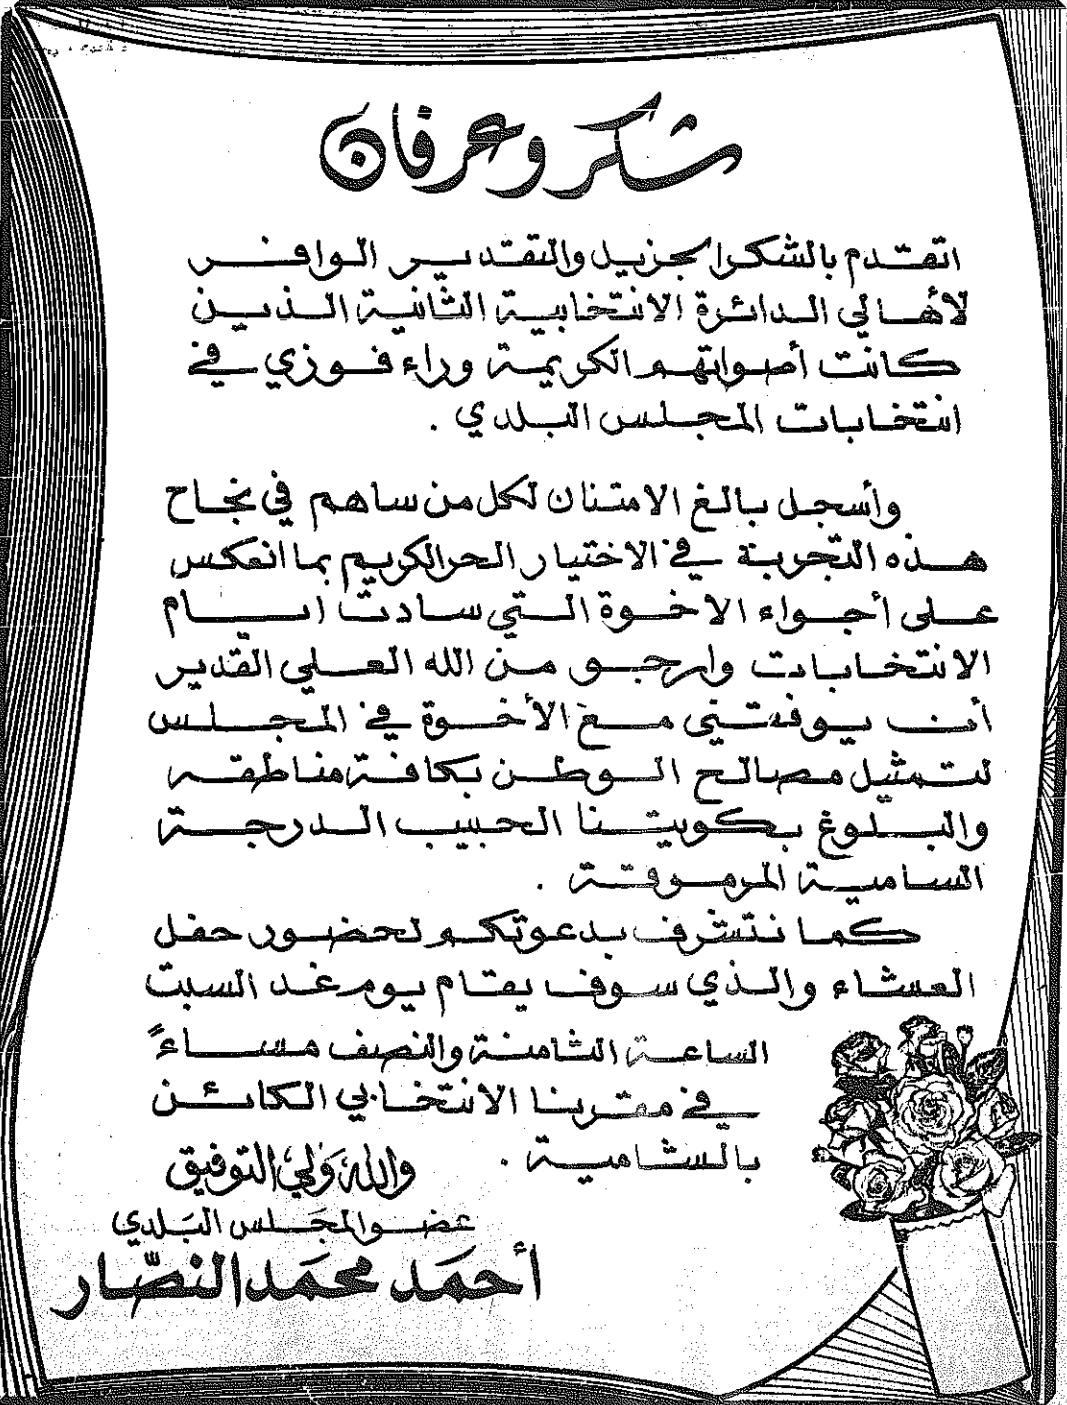 شكر وعرفان
اتقدم بالشكر الجزيل والتقدير الوافر
لأهالي الدائرة الانتخابية الثانية الذين
كانت أصواتهم الكريمة وراء فوزي في
انتخابات المجلس البلدي .
وأسجل بالغ الامتنان لكل من ساهم في نجاح
هذه التجربة في الاختيار الحر الكريم بما انعكس
على أجواء الاخوة التي سادت ايام
الانتخابات وارجو من الله العلي القدير
أن يوفقني مع الأخوة في المجلس
لتمثيل مصالح الوطن بكافة مناطقه
والبلوغ بكويتنا الحبيب الدرجة
السامية المرموقة .
كما نتشرف بدعوتكم لحضور حفل
العشاء والذي سوف يقام يوم غد السبت
الساعة الثامنة والنصف مساءً
في مقرنا الانتخابي الكائن
بالشامية .
والله ولي التوفيق
عضو المجلس البلدي
أحمد محمد النصّار